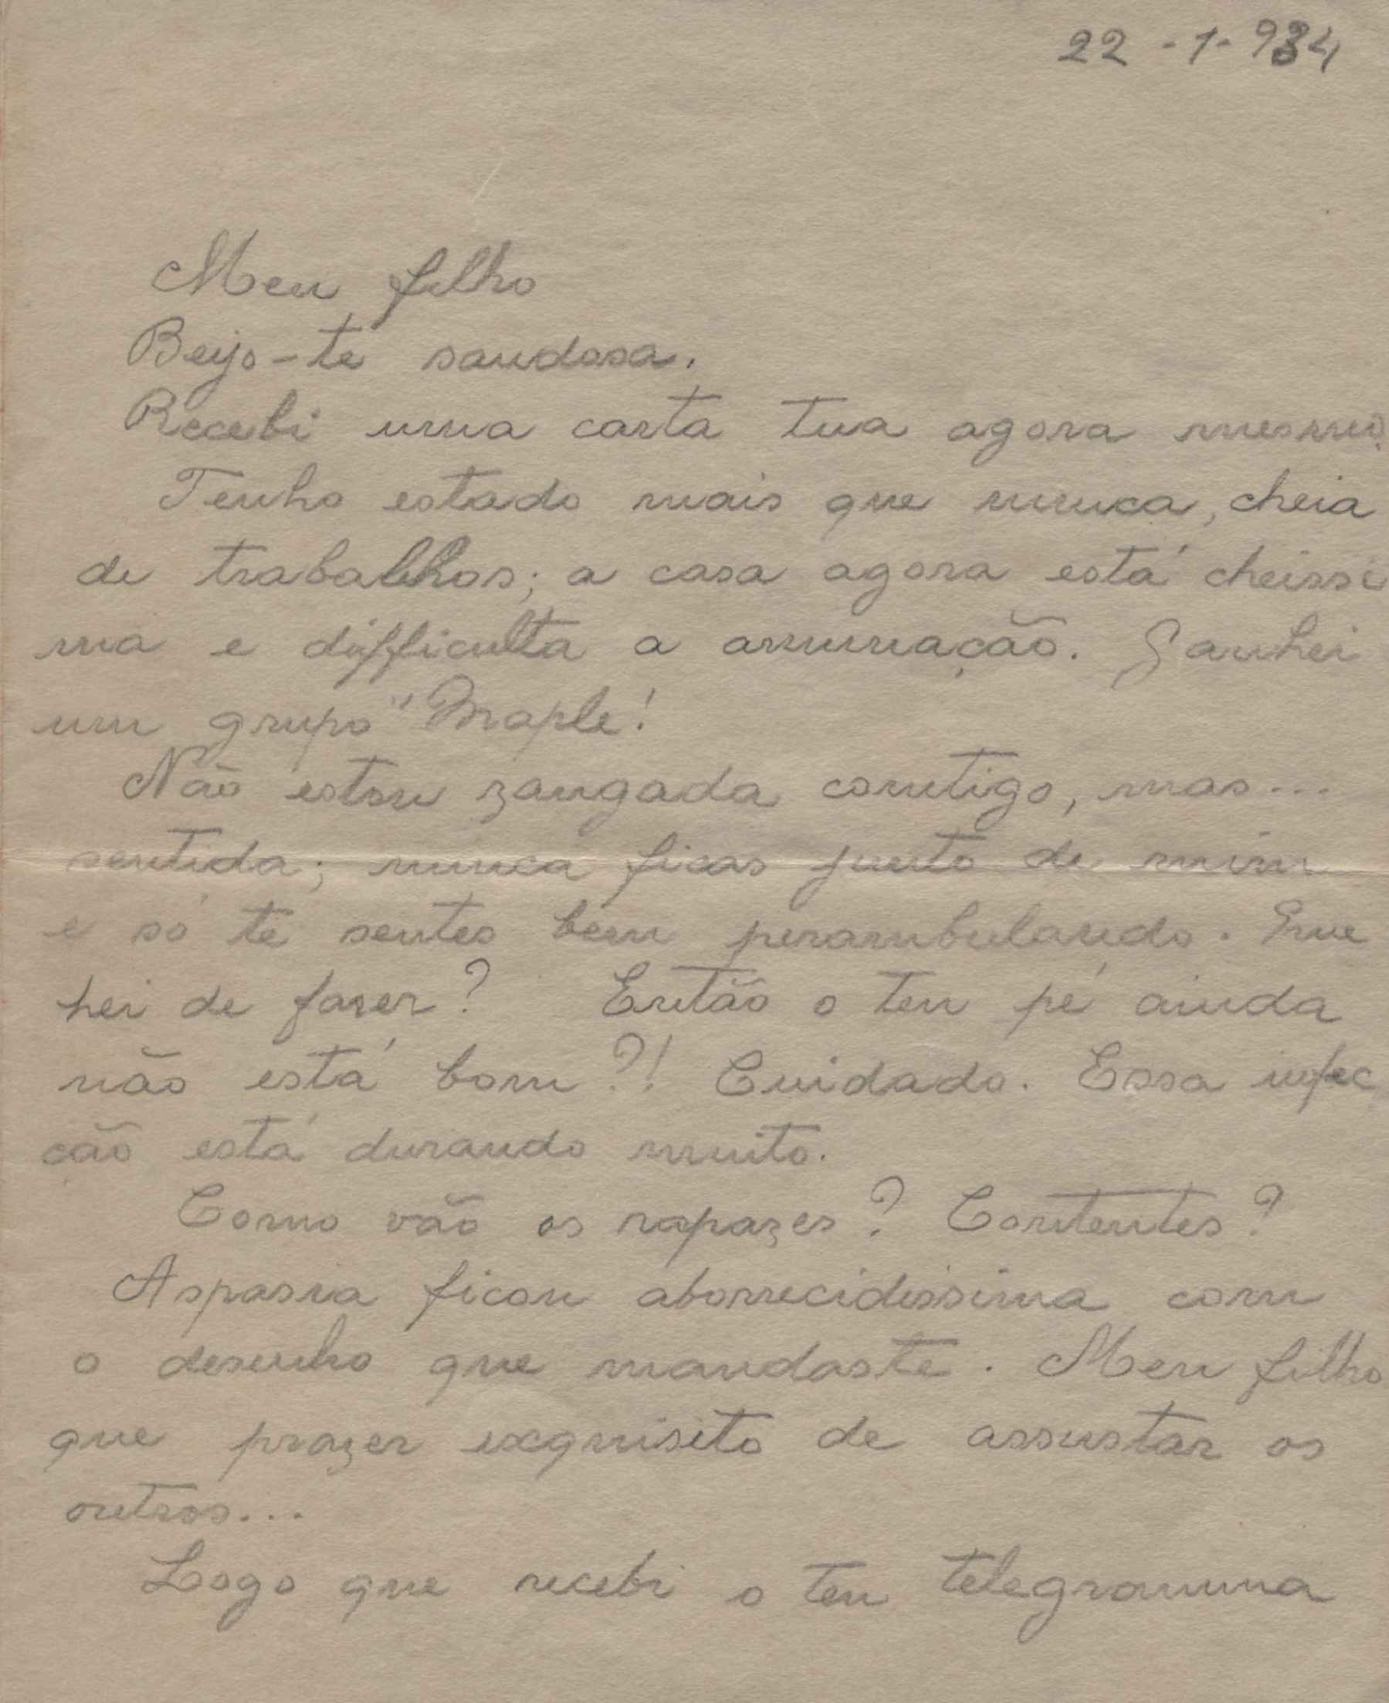 22-1-934
Meu filho
Beijo-te saudosa.
Recebi uma carta tua agora mesmo.
Tenho estado mais que nunca, cheia
de trabalhos; a casa agora está cheissi
ma e difficulta a arrumação. Ganhei
um grupo "Maple!
Não estou zangada comtigo, mas...
sentida; nunca ficas junto de mim
e só te sentes bem perambulando. Que
hei de fazer? Então o teu pé ainda
não está bom?! Cuidado. Essa infec
ção está durando muito.
Como vão os rapazes? Contentes?
Aspasia ficou aborrecidissima com
o desenho que mandaste. Meu filho
que prazer exquisito de assustar os
outros...
Logo que recebi o teu telegramma